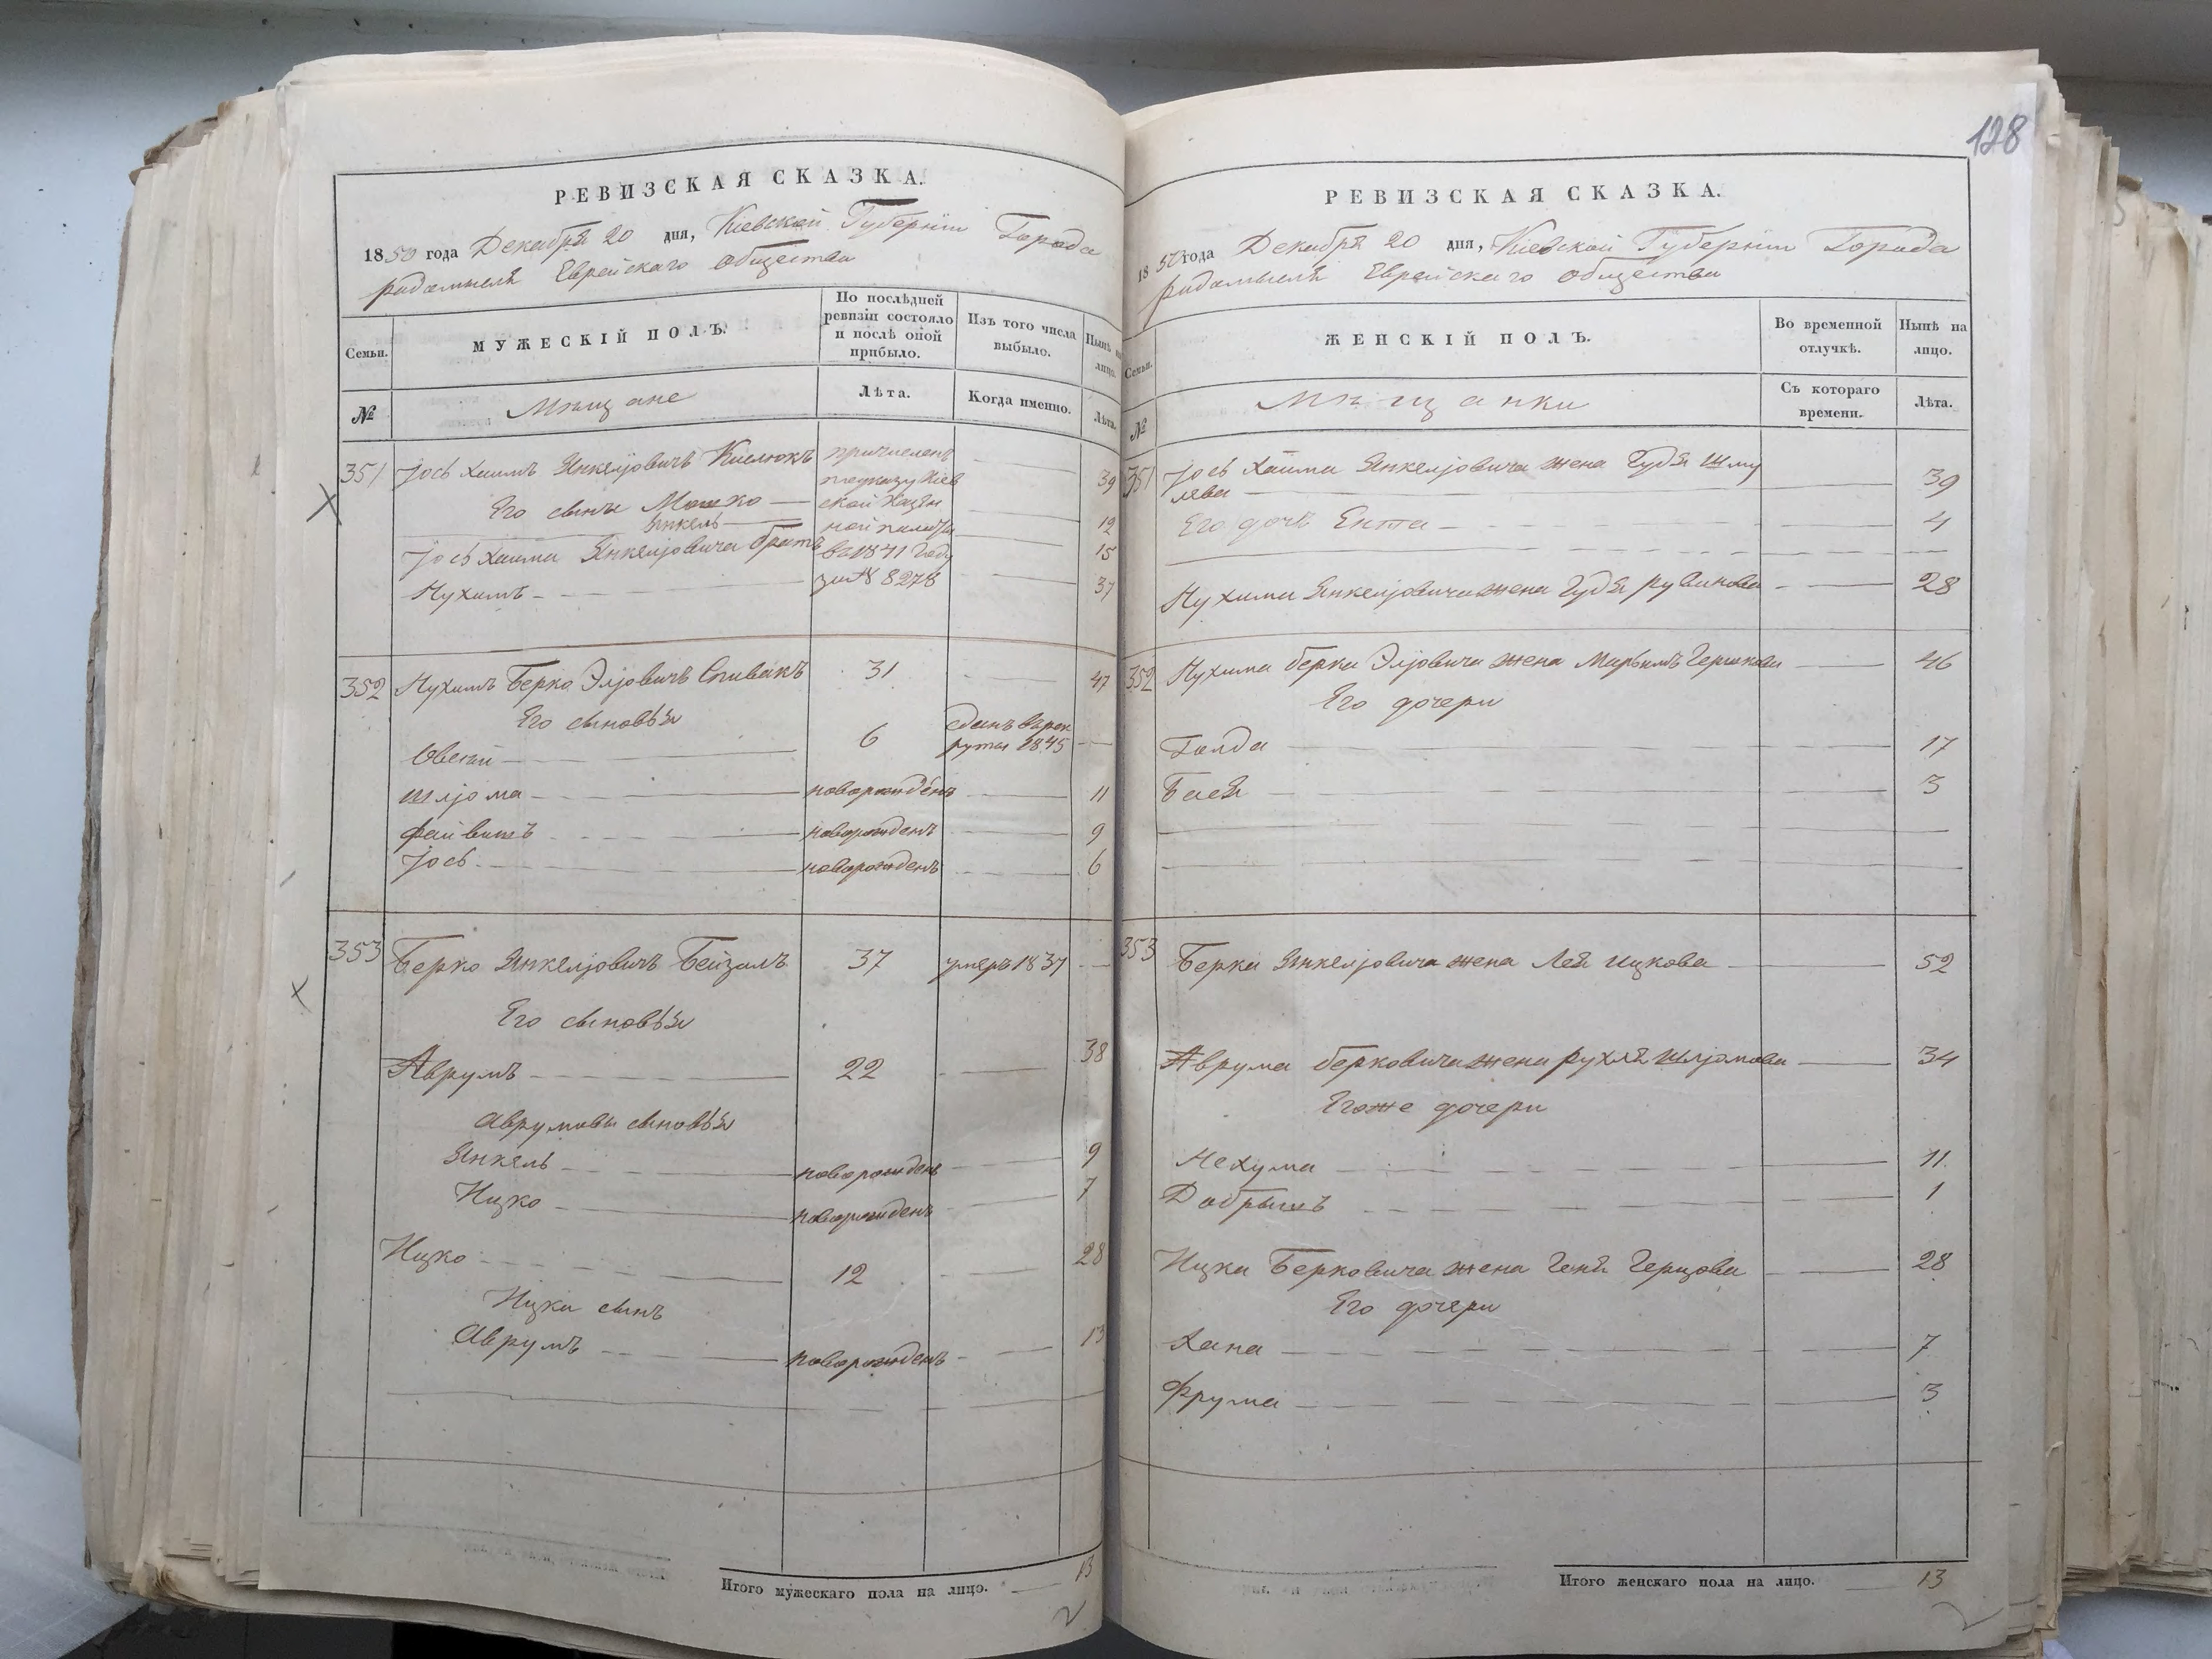 128
РЕВИЗСКАЯ СКАЗКА.
1850 года Декабря 20 дня, Кіевской Губерніи Города
Радомысля Еврейскаго общества
Семьи.
МУЖЕСКІЙ ПОЛЪ.
По послѣдней
ревизіи состояло
и послѣ оной
прибыло.
Изъ того числа
выбыло.
Нынѣ на
лицо.
№
Мѣщане
Лѣта.
Когда именно.
Лѣта.
351 Іось Хаимъ Янкеліовичъ Киелюкъ причисленъ 39
Его сыны Мошко по указу Кіев
ской Казен 12
Янкель ной палаты
Іось Хаима Янкеліовича братъ въ 1841 году 15
Нухимъ за № 8278 37
352 Нухимъ Берко Эліовичъ Спивакъ 31 47
Его сыновья
Овсей 6 сданъ въ рек
руты 1845
Шліома новорожденъ 11
Файвишъ новорожденъ 9
Іось новорожденъ 6
353 Берко Янкеліовичъ Бейзамъ 37 умеръ 1837
Его сыновья
Аврумъ 22 38
Аврумовы сыновья
Янкель новорожденъ 9
Ицко новорожденъ 7
Ицко 12 28
Ицки сынъ
Аврумъ новорожденъ 13
Итого мужескаго пола на лицо. 13
РЕВИЗСКАЯ СКАЗКА.
1850 года Декабря 20 дня, Кіевской Губерніи Города
Радомысля Еврейскаго общества
Семьи.
ЖЕНСКІЙ ПОЛЪ.
Во временной
отлучкѣ.
Нынѣ на
лицо.
№
Мѣщанки
Съ котораго
времени.
Лѣта.
351 Іось Хаима Янкеліовича жена Гудя Шму
лева 39
Его дочь Ента 4
Нухима Янкеліовича жена Гудя Рувинова 28
352 Нухима Берка Эліовича жена Марьимъ Гершкова 46
Его дочери
Голда 17
Бася 3
353 Берка Янкеліовича жена Лея Ицкова 52
Аврума Берковича жена Рухля Шліомова 34
Его же дочери
Нехума 11
Добрышъ 1
Ицка Берковича жена Геня Герцова 28
Его дочери
Хана 7
Фрума 3
Итого женскаго пола на лицо. 13